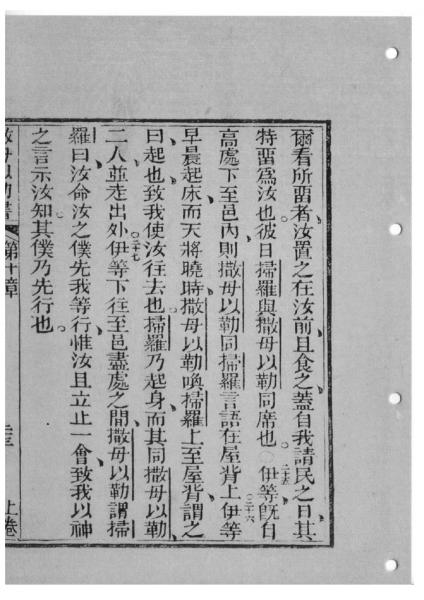 爾看所留者汝置之在汝前且食之蓋自我請民之日其
特留爲汝也彼日掃羅與撒母以勒同席也○二十五伊等既自
高處下至邑內則撒母以勒同掃羅言語在屋背上○二十六伊等
早晨起床而天將曉時撒母以勒喚掃羅上至屋背謂之
曰起也致我使汝往去也掃羅乃起身而其同撒母以勒
二人並走出外○二十七伊等下往至邑盡處之間撒母以勒謂掃
羅曰汝命汝之僕先我等行惟汝且立止一會致我以神
之言示汝知其僕乃先行也
撒母以勒書 第十章 上卷